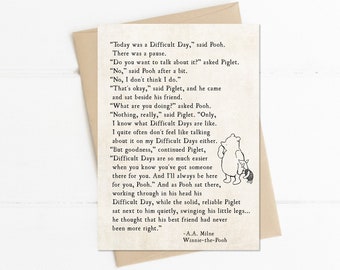 "Today was a Difficult Day," said Pooh.
There was a pause.
"Do you want to talk about it?" asked Piglet.
"No," said Pooh after a bit.
"No, I don't think I do."
"That's okay," said Piglet, and he came
and sat beside his friend.
"What are you doing?" asked Pooh.
"Nothing, really," said Piglet. "Only,
I know what Difficult Days are like.
I quite often don't feel like talking
about it on my Difficult Days either.
"But goodness," continued Piglet,
"Difficult Days are so much easier
when you know you've got someone
there for you. And I'll always be here
for you, Pooh." And as Pooh sat there,
working through in his head his
Difficult Day, while the solid, reliable Piglet
sat next to him quietly, swinging his little legs...
he thought that his best friend had never
been more right."
-A.A. Milne
Winnie-the-Pooh